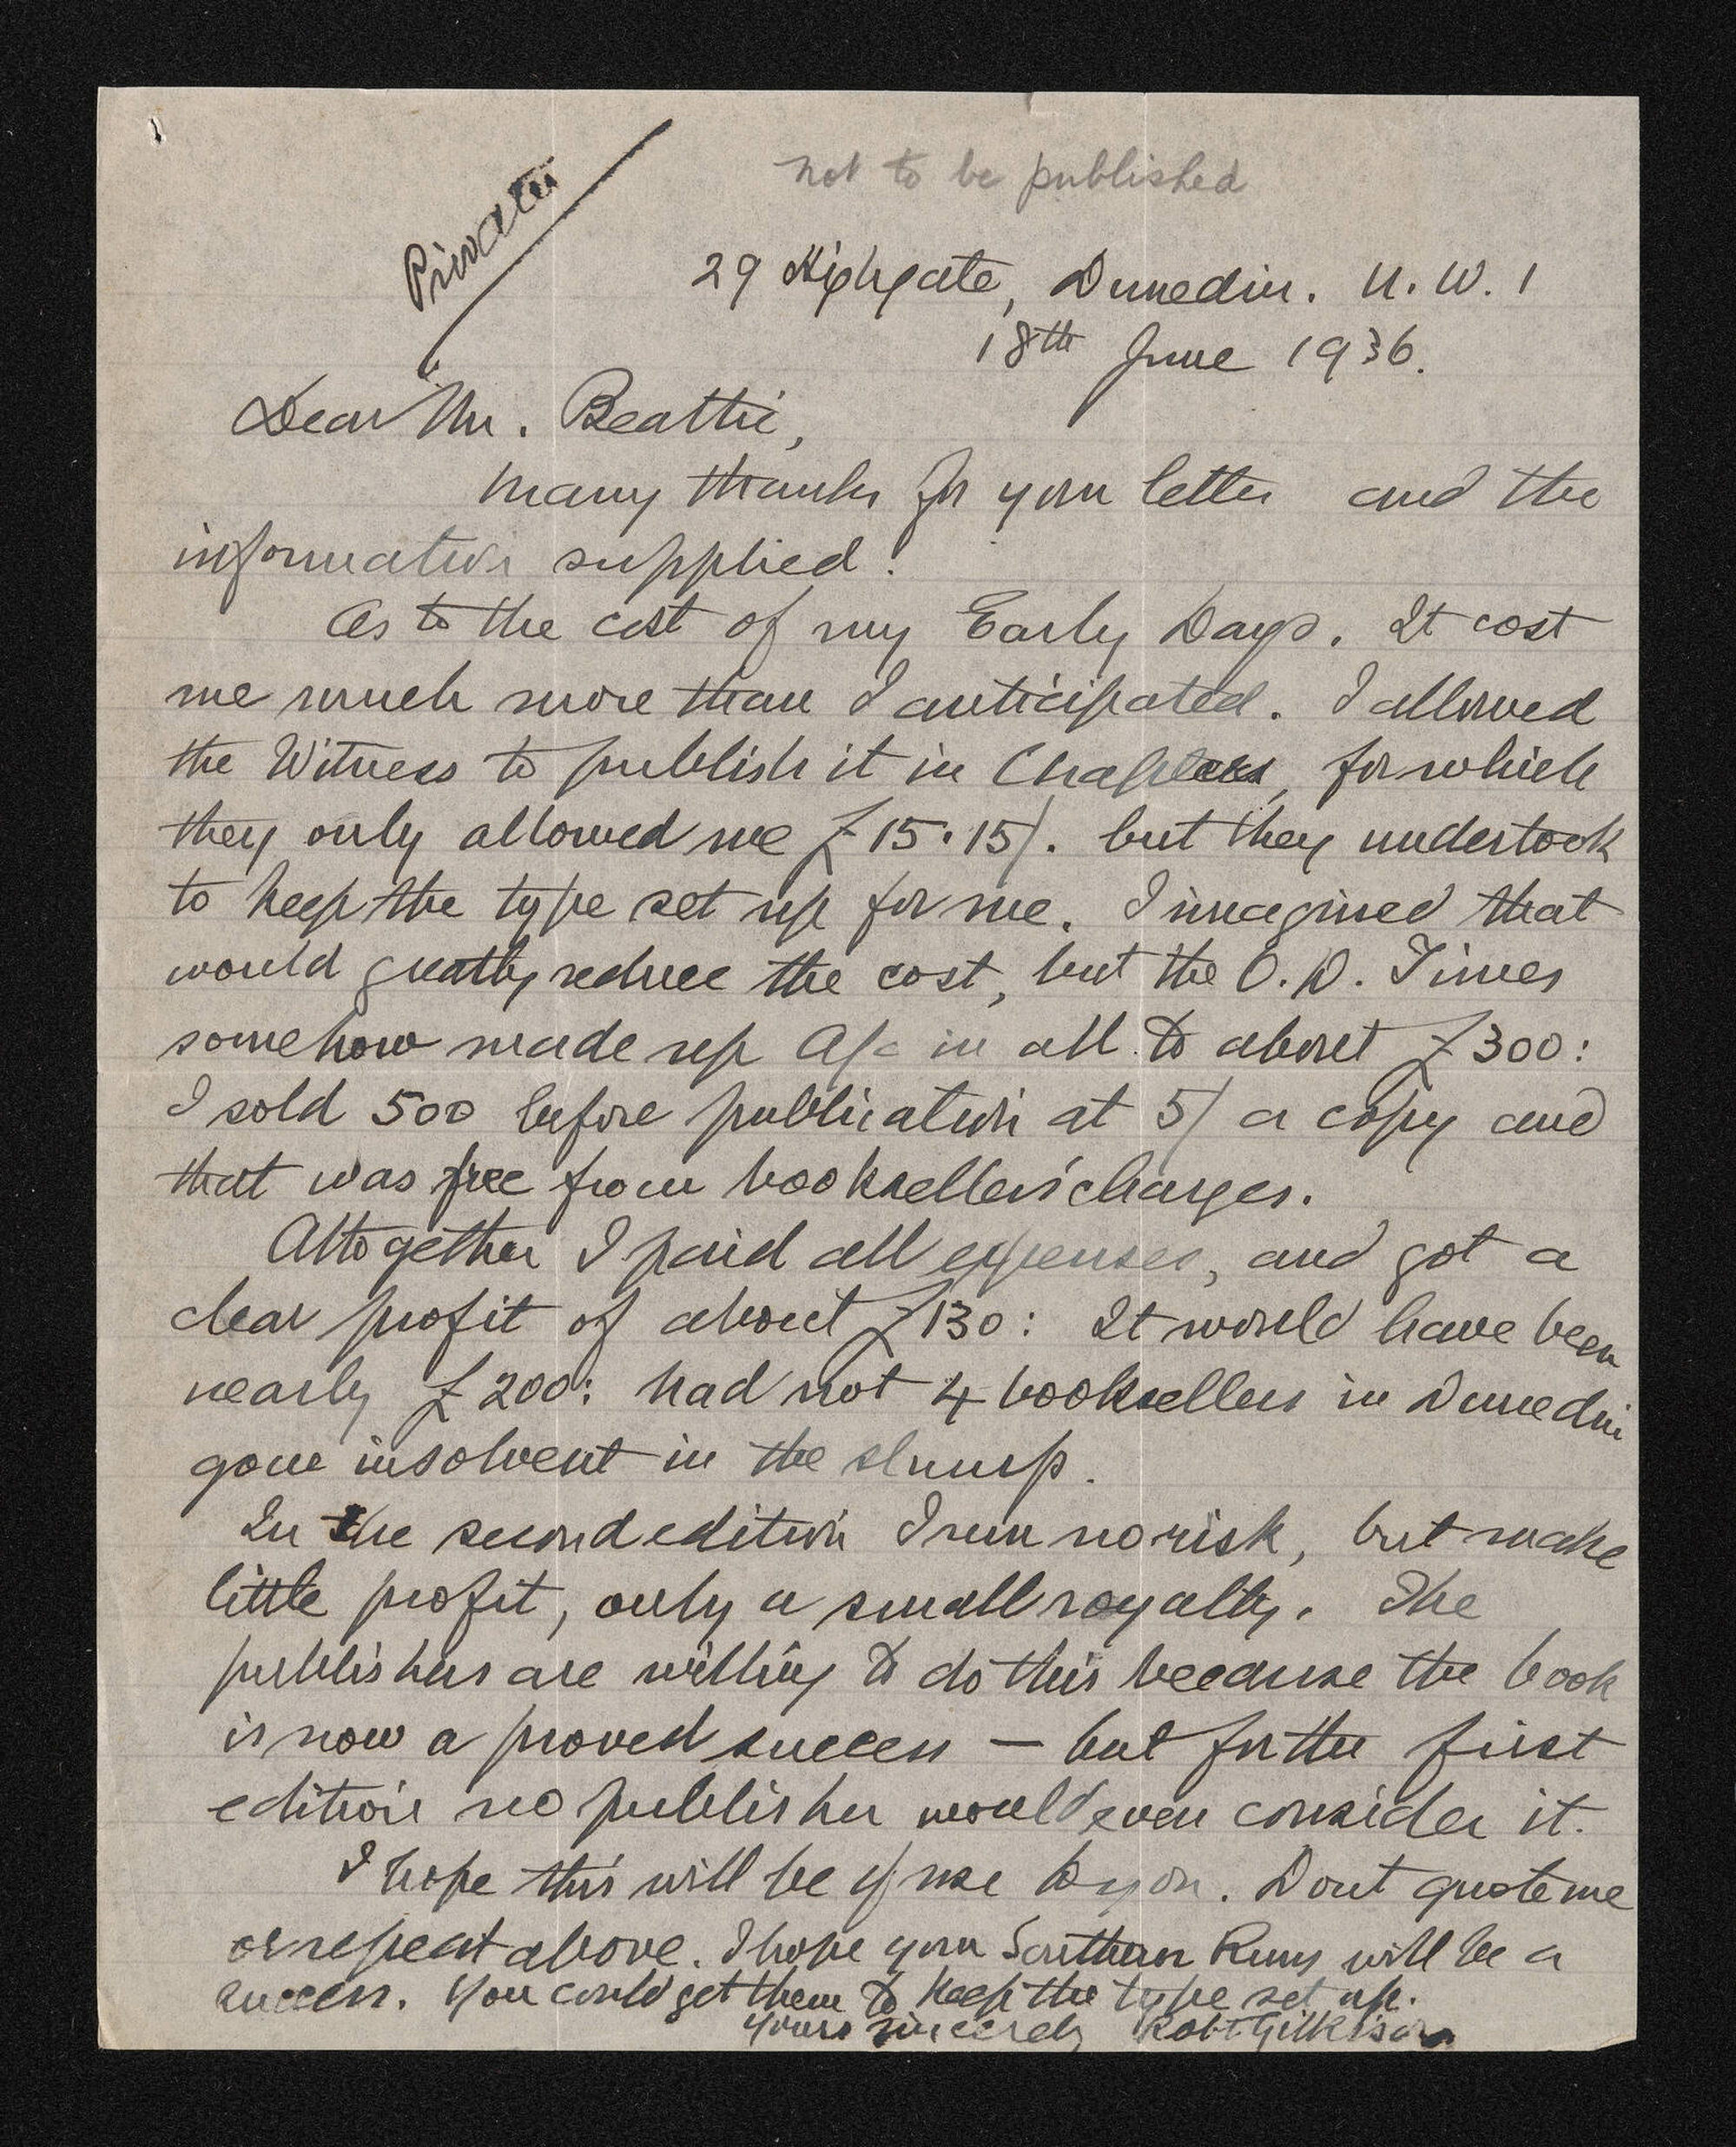 not to be published
Private
29 Highgate, Dunedin. N.W.1
18th June 1936.
Dear Mr. Beattie,
Many thanks for your letter and the
information supplied.
As to the cost of my Early Days. It cost
me much more than I anticipated. I allowed
the Witness to publish it in Chapters, for which
they only allowed me £15.15/. but they undertook
to keep the type set up for me. I imagined that
would greatly reduce the cost, but the O.D. Times
somehow made up a/c in all to about £300:
I sold 500 before publication at 5/ a copy and
that was free from booksellers' charges.
Altogether I paid all expenses, and got a
clear profit of about £130: It would have been
nearly £200: had not 4 booksellers in Dunedin
gone insolvent in the slump.
In the second edition I run no risk, but make
little profit, only a small royalty. The
publishers are willing to do this because the book
is now a proved success — but for the first
edition no publisher would even consider it.
I hope this will be of use to you. Dont quote me
or repeat above. I hope your Southern Runs will be a
success. You could get them to keep the type set up.
Yours sincerely Robt Gilkison